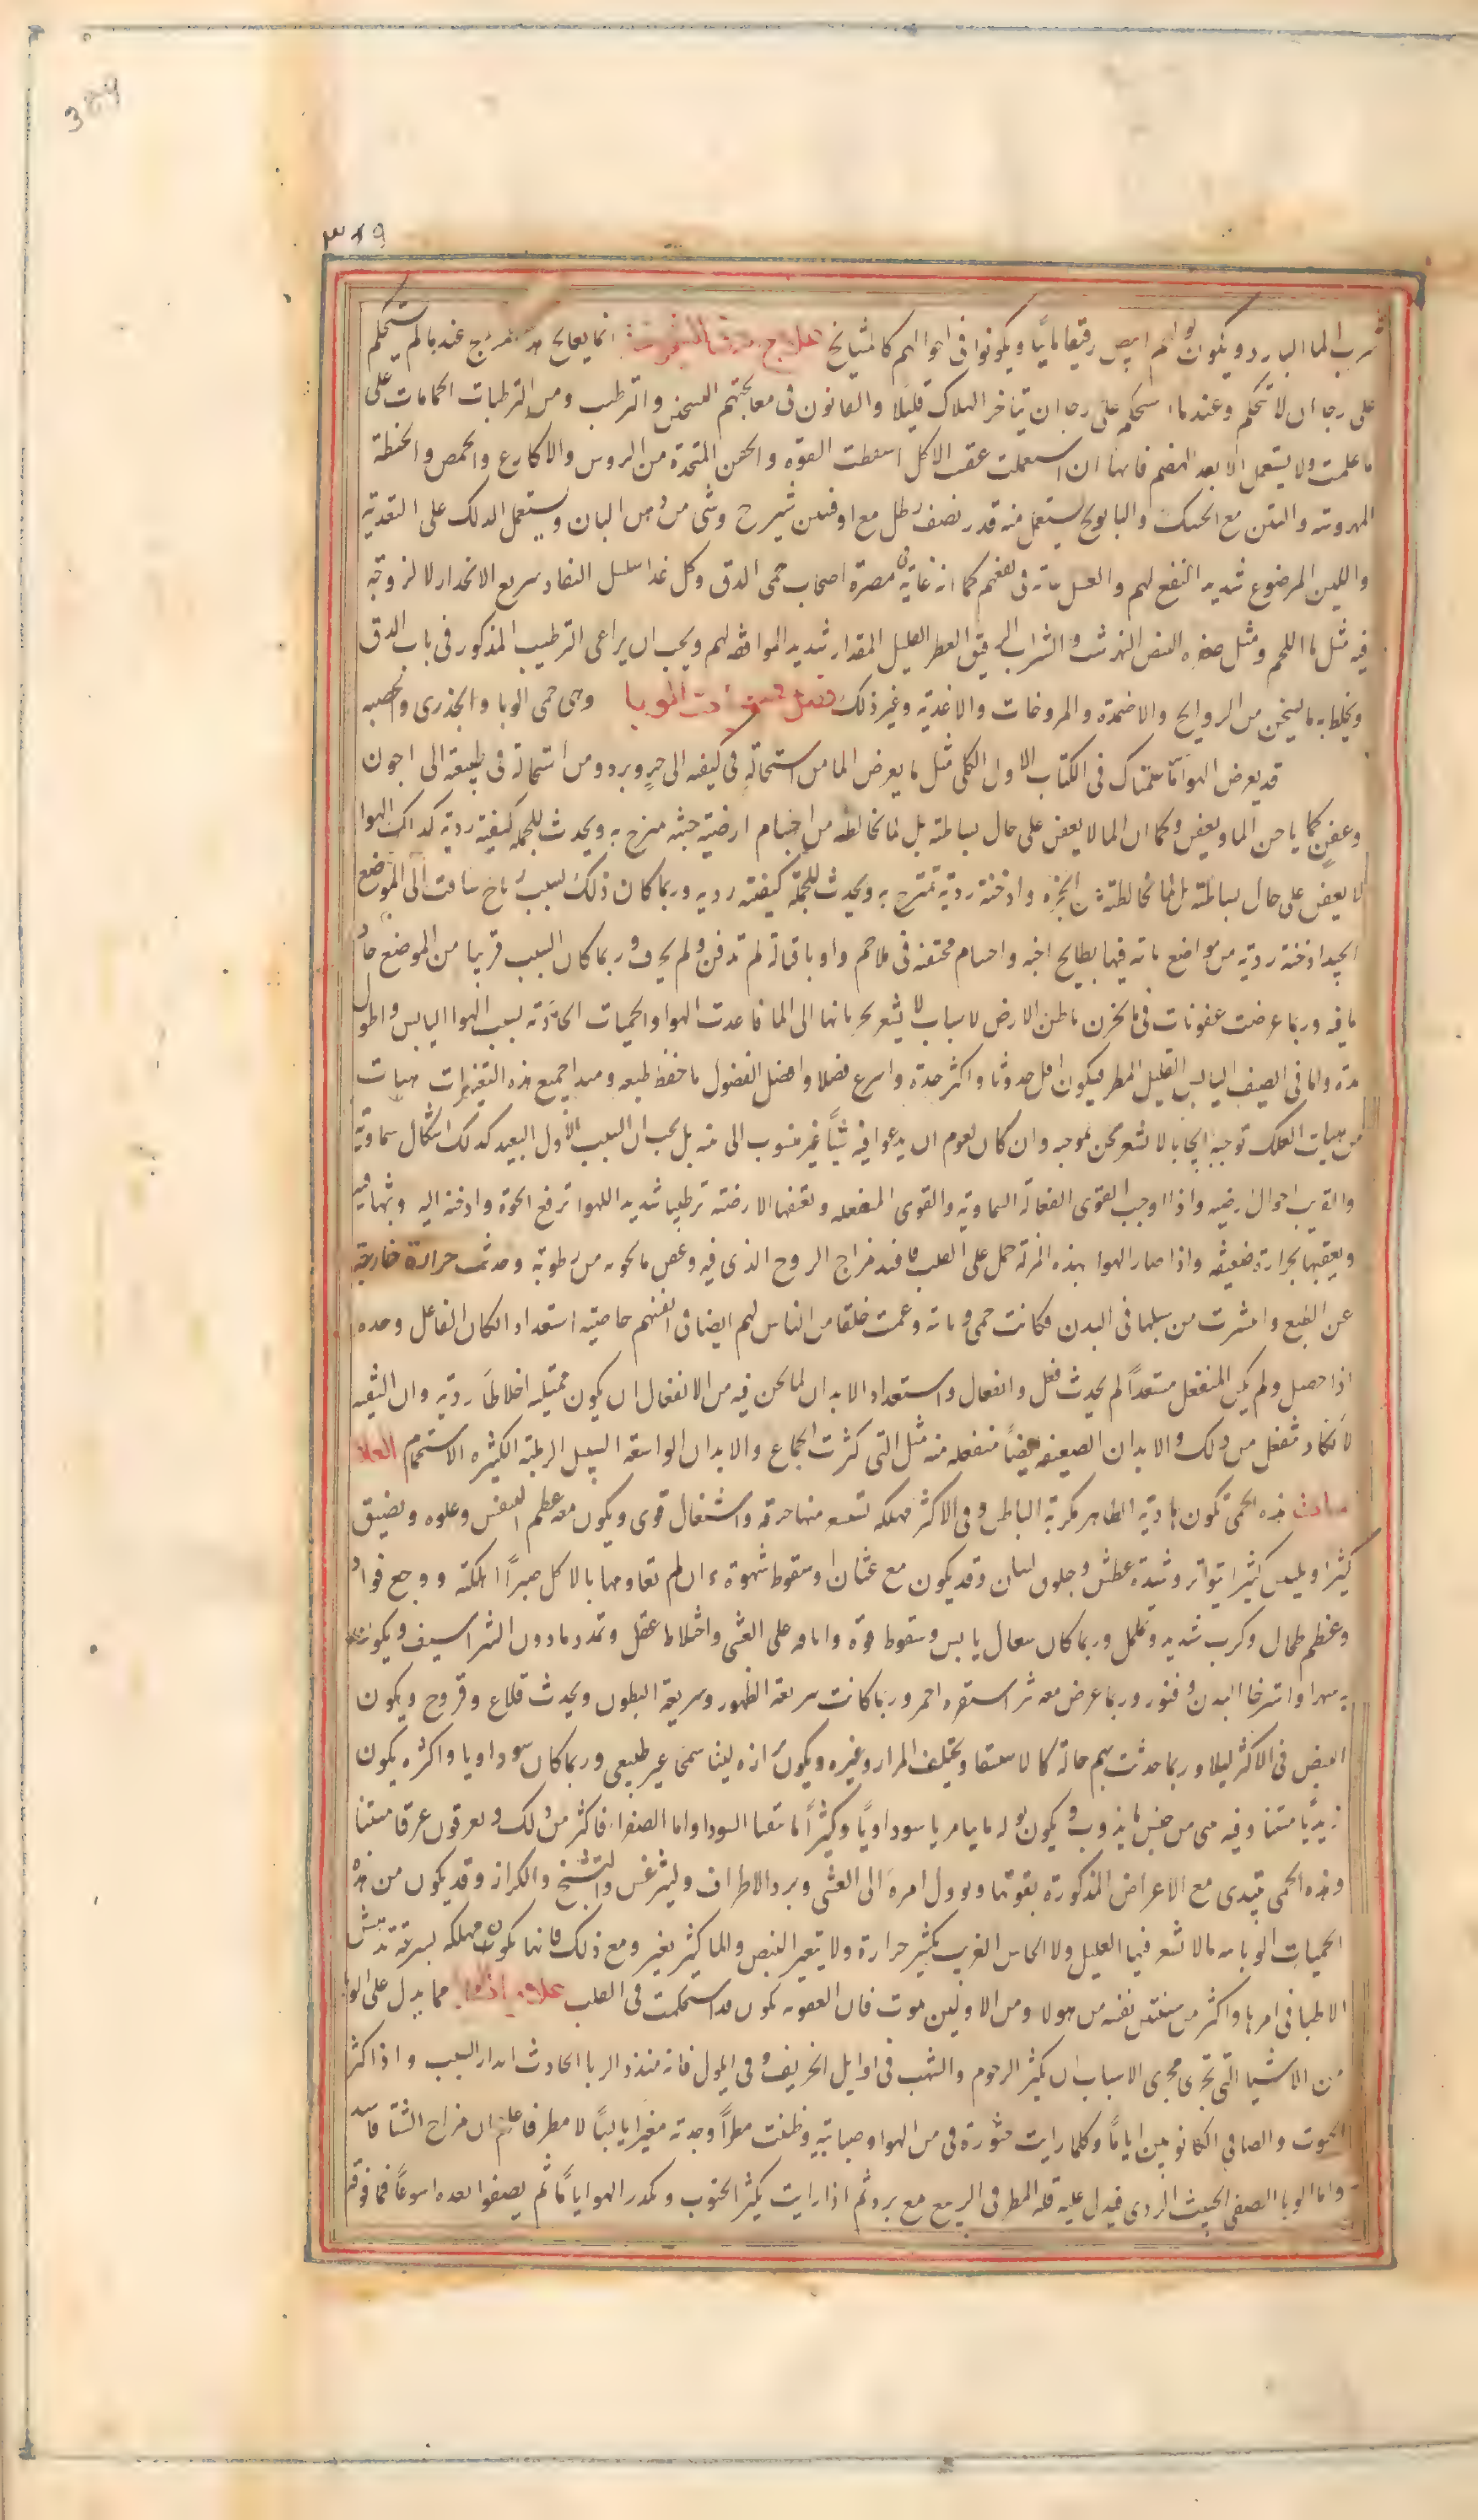 389
٣٨٩
شرب الما البارد ويكون بولهم ابيض رقيقا مائيا ويكونوا فى احوالهم كالمشايخ علاج دق الشيخوخة انما يعالج عندما لم يستحكم
على رجا ان لا تحكم وعندما استحكم على رجا ان يتاخر الهلاك قليلا والقانون فى معالجتهم التسخين والترطيب ومن المرطبات الحمامات على
ما علمت ولا يستعمل الا بعد الهضم فانها ان استعملت عقب الاكل اسقطت القوة والحقن المتخذة من الروس والاكارع والحمص والحنطة
المهروسة والتين مع الحسك والبابونج يستعمل منه قدر نصف رطل مع اوقيتين شيرج وشى من دهن البان ويستعمل الدلك على التغدية
واللبن المرضوع شديد النفع لهم والعسل غاية فى نفعهم كما انه غاية فى مضرة اصحاب حمى الدق وكل غدا سلس النفاد سريع الانحدار لا لزوجة
فيه مثل ما اللحم ومثل صفرة البيض النمرشت والشراب الرقيق العطر القليل المقدار شديد الموافقة لهم ويجب ان يراعى الترطيب المذكور فى باب الدق
ويخلط به ما يسخن من الروايح والاضمدة والمروخات والاغدية وغير ذلك فصل فى حميات الوبا وهى حمى الوبا والجدرى والحصبه
قد يعرض للهوا ما علمناك فى الكتاب الاول الكلى مثل ما يعرض للما من استحالة فى كيفيه الى حر وبرد ومن استحالة فى طبيعه الى اجون
وعفن كما ياجن الما ويعفن وكما ان الما لا يعفن على حال بساطته بل لما يخالطه من اجسام ارضية خبيثه تمتزج به ويحدث للجملة كيفية ردية كذلك الهوا
لا يعفن على حال بساطته بل لما يخالطه من ابخرة وادخنة ردية تمتزج به ويحدث للجملة كيفية رديه وربما كان ذلك لسبب رياح ساقت الى الموضع
الجيد ادخنة ردية من مواضع نائيه فيها بطايح اجنه واجسام متعفنة فى ملاحم واوبا قتاله لم تدفن ولم يحرق وربما كان السبب قريبا من الموضع جاريا
ما فيه وربما عرضت عفونات فى باطن الارض لاسباب لا يشعر بجزئياتها الى الما فاعدت الهوا والحميات الحادثه لسبب الهوا اليابس واطول
مدة واما فى الصيف اليابس القليل المطر فيكون اقل حدوثا واكثر حدة واسرع فصلا وافضل الفصول ما حفظ طبعه ومبدا جميع هذه التغيرات هيات
من هيات الفلك توجبه ايجابا لا نشعر نحن بموجبه وان كان لقوم ان يدعوا فيه شيا غير منسوب الى بينه بل يجب ان السبب الاول البعيد لذلك اشكال سماوية
والقريب احوال ارضيه واذا اوجب القوى الفعالة السماويه والقوى المنفعله الارضية ترطيبا شديدا للهوا ترفع ابخرة وادخنة اليه وبثها فيه
ويعفنها بحرارة ضعيفه واذا صار الهوا بهذه المنزلة حمل على القلب فافسد مزاج الروح الذى فيه وعفن ما يحويه من رطوبة وحدثت حرارة خارجة
عن الطبع وانتشرت من سبيلها فى البدن فكانت حمى وبائية وعمت خلقا من الناس لهم ايضا فى انفسهم خاصية استعداد اذا كان الفاعل وحده
اذا حصل ولم يكن المنفعل مستعدا لم يحدث فعل وانفعال واستعداد الابدان لما نحن فيه من الانفعال ان يكون ممتليه اخلاطا ردية وان النقيه
لا تكاد تنفعل من ذلك والابدان الضعيفه ايضا منفعله منه مثل التى كثرت الجماع والابدان الواسعه السبيل الرطبة الكثيره الاستحمام العلا
مات هذه الحمى تكون هادية الظاهر مكربة الباطن وفى الاكثر مهلكه تستشعر منها حرقة واشتعال قوى ويكون معه عظم النفس وعلوه ويضيق
كثيرا ويلبس كثيرا بتواتر وشدة عطش وجفوف لسان وقد يكون مع غثيان او سقوط شهوة وان لم تقاومها بالاكل صبرا اهلكته ووجع فواد
وعظم طحال وكرب شديد وتململ وربما كان سعال يابس وسقوط قوة وانافه على الغشى واختلاط عقل وتمدد ما دون الشراسيف ويكون معه
به سهر او استرخا البدن وفتور وربما عرض معه بثر استقره احمر وربما كانت سريعة الظهور وسريعة البطون ويحدث قلاع وقروح ويكون
النبض فى الاكثر ليلا وربما حدثت بهم حالة كالاستسقا ويختلف المرار وغيره ويكون برازه لينا سمجا غير طبيعى وربما كان سوداويا واكثره يكون
زبديا منتنا وفيه شى من جنس ما يذوب ويكون بوله مائيا مريا سوداويا وكثيرا ما تقيا السودا واما الصفرا فاكثر من ذلك ويعرقون عرقا منتنا
وهذه الحمى تبتدى مع الاعراض المذكورة بقوتها ويوول امره الى الغشى وبرد الاطراف وليثرغس والتشنج والكزاز وقد يكون من هذه
الحميات الوبائيه ما لا تشعر فيها العليل ولا الجاس الغريب بكثير حرارة ولا يتغير النبض والما كثير تغير ومع ذلك فانها تكون مهلكه بسرعة تدهش
الاطبا فى امرها واكثر من يتنتن نفسه من هولا ومن الاولين يموت فان العفونه تكون قد استحكمت فى القلب علامات الوبا مما يدل على الوبا
من الاشيا التى تجرى مجرى الاسباب ان يكثر الرجوم والشهب فى اوايل الخريف وفى ايلول فانه منذر بالوبا الحادث انذار السبب واذا كثر
الجنوب والصبا فى الكانونين اياما وكلما رايت خثورة فى الهوا وضبابية وظننت مطرا وجدته مغبرا يابسا لا مطر فاعلم ان مزاج الشتا فاسد
واما الوبا الصيفى الخبيث الردى فيدل عليه قلة المطر فى الربيع مع برد ثم اذا رايت يكثر الجنوب ويكدر الهوا اياما ثم يصفوا بعده اسبوعا فما فوقه